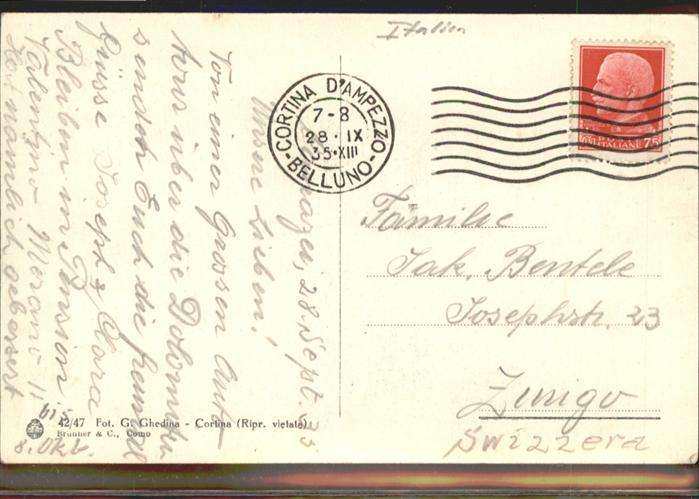 Italien
CORTINA D'AMPEZZO
7-8
28·IX
35·XIII
BELLUNO
POSTE ITALIANE
75
28. Sept. 35
Unsere Lieben!
Von einer Grossen Auto
über die Dolomiten
senden Euch die
Grüsse Joseph & Clara
Bleiben in Pension
Valentino Merano
bis
8. Okt.
nämlich gebessert
Familie
Jak. Bentele
Josephstr. 23
Zurigo
Swizzera
42/47 Fot. G. Ghedina - Cortina (Ripr. vietata)
Brunner & C., Como